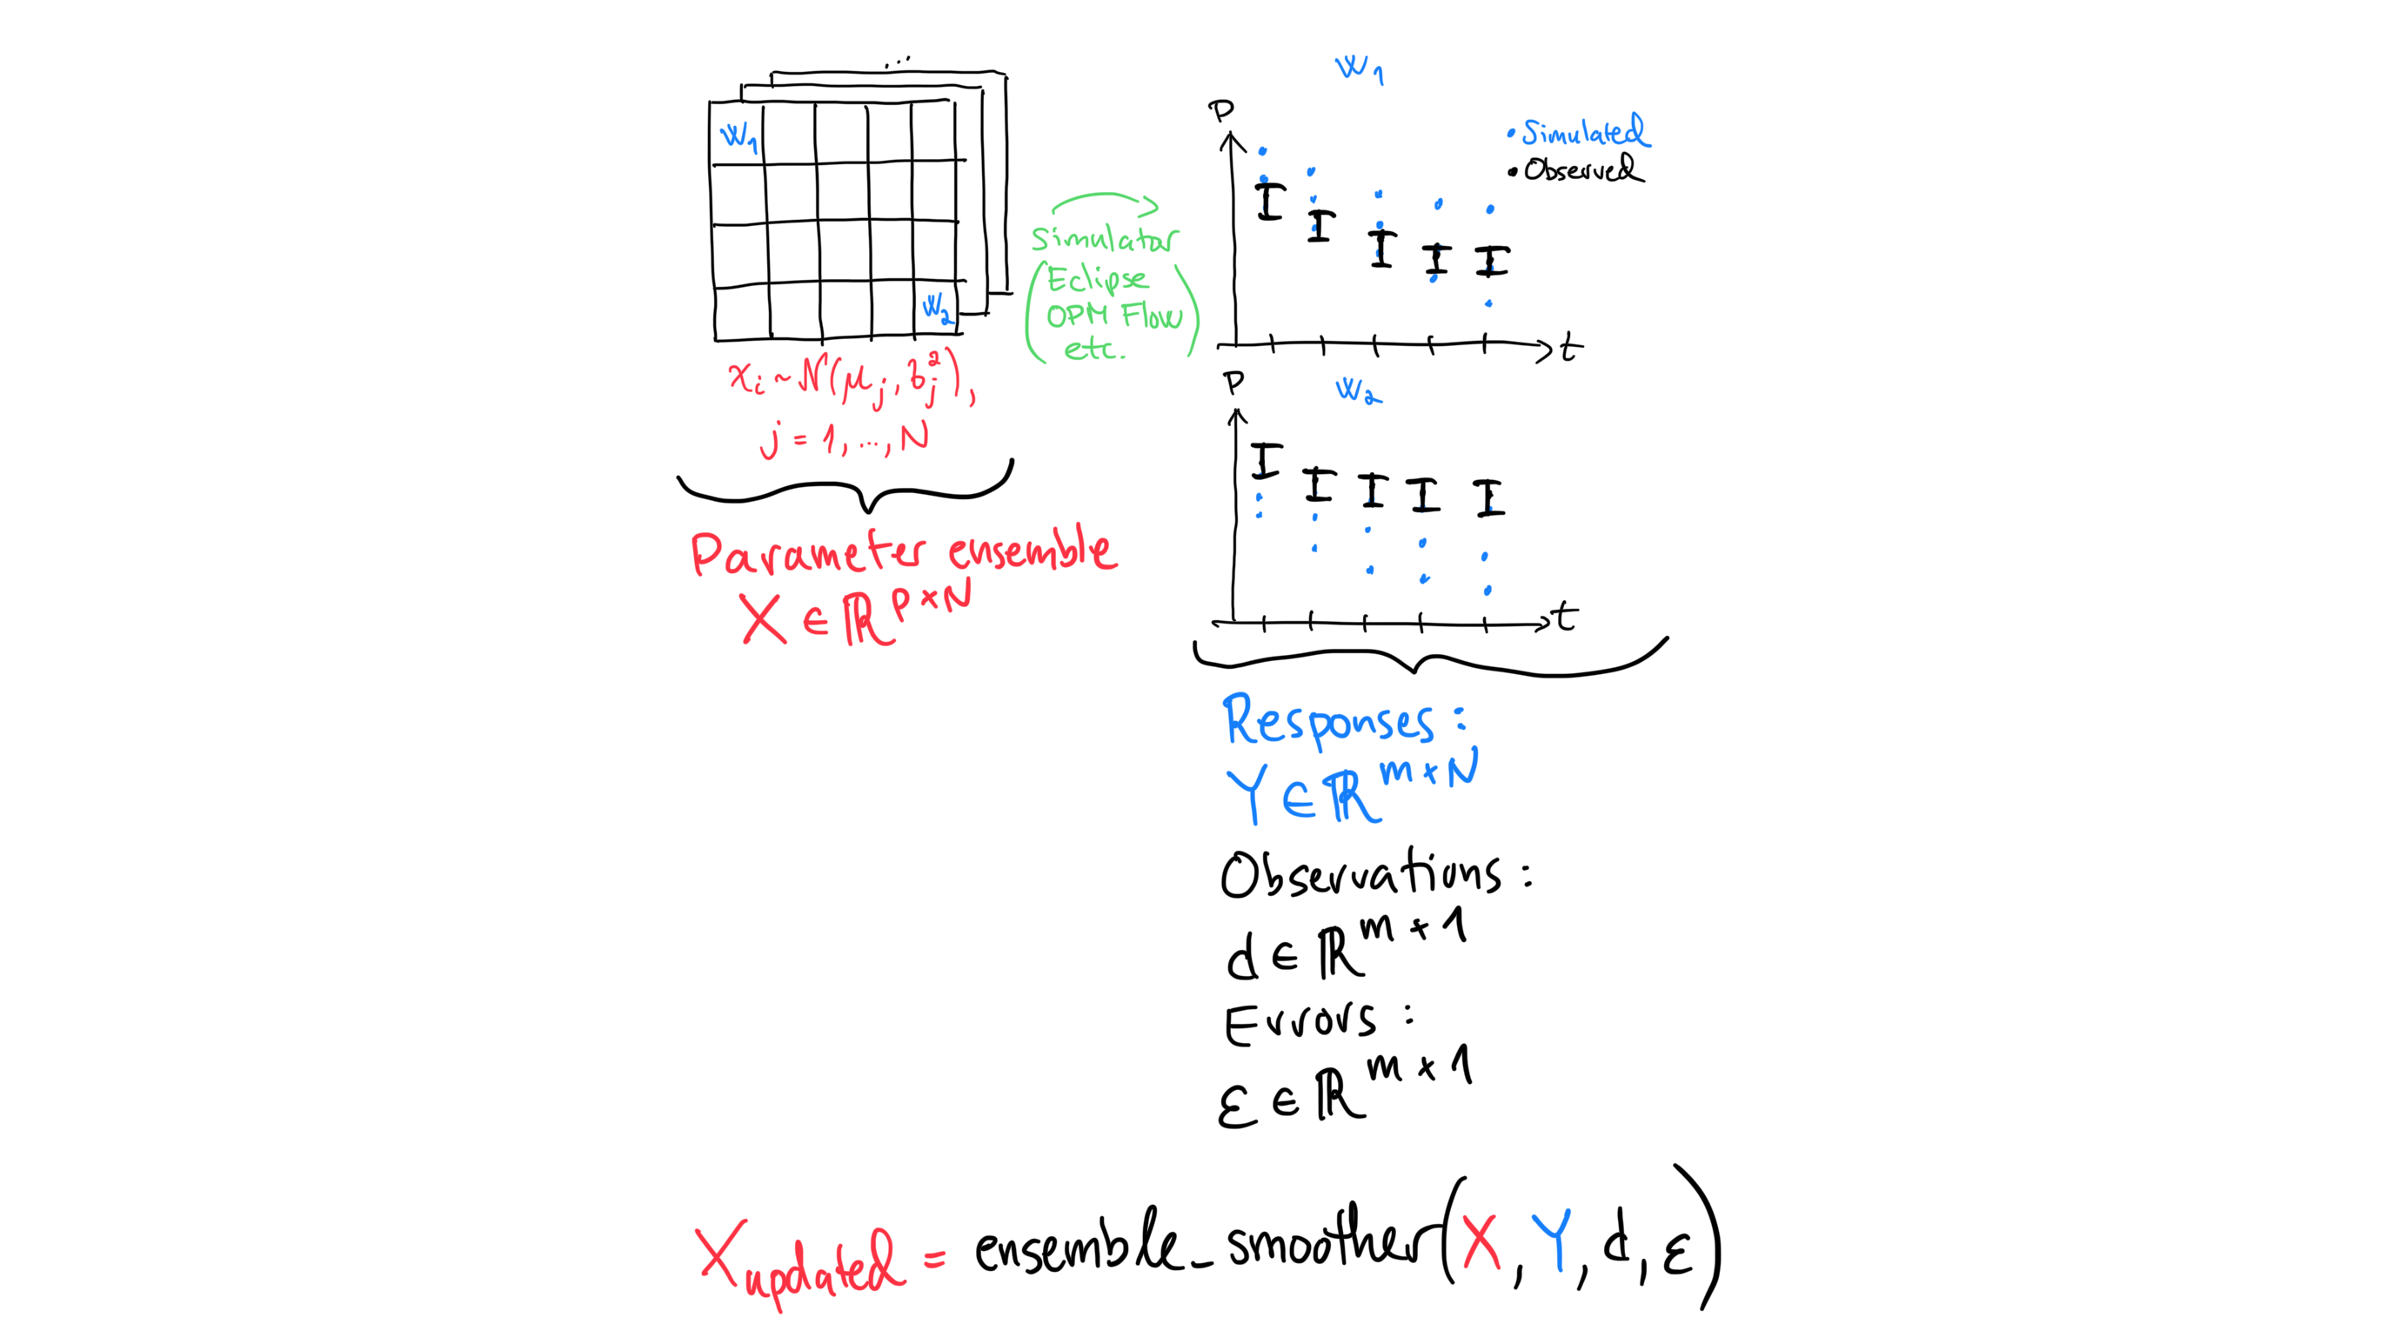 ...
W₁
W₂
xᵢ ~ N(μⱼ, σⱼ²),
j = 1, ..., N
Parameter ensemble
X ∈ ℝ^(P×N)
Simulator
(Eclipse
OPM Flow
etc.)
W₁
P
• Simulated
• Observed
t
W₂
P
t
Responses:
Y ∈ ℝ^(m×N)
Observations:
d ∈ ℝ^(m×1)
Errors:
ε ∈ ℝ^(m×1)
X_updated = ensemble_smoother(X, Y, d, ε)